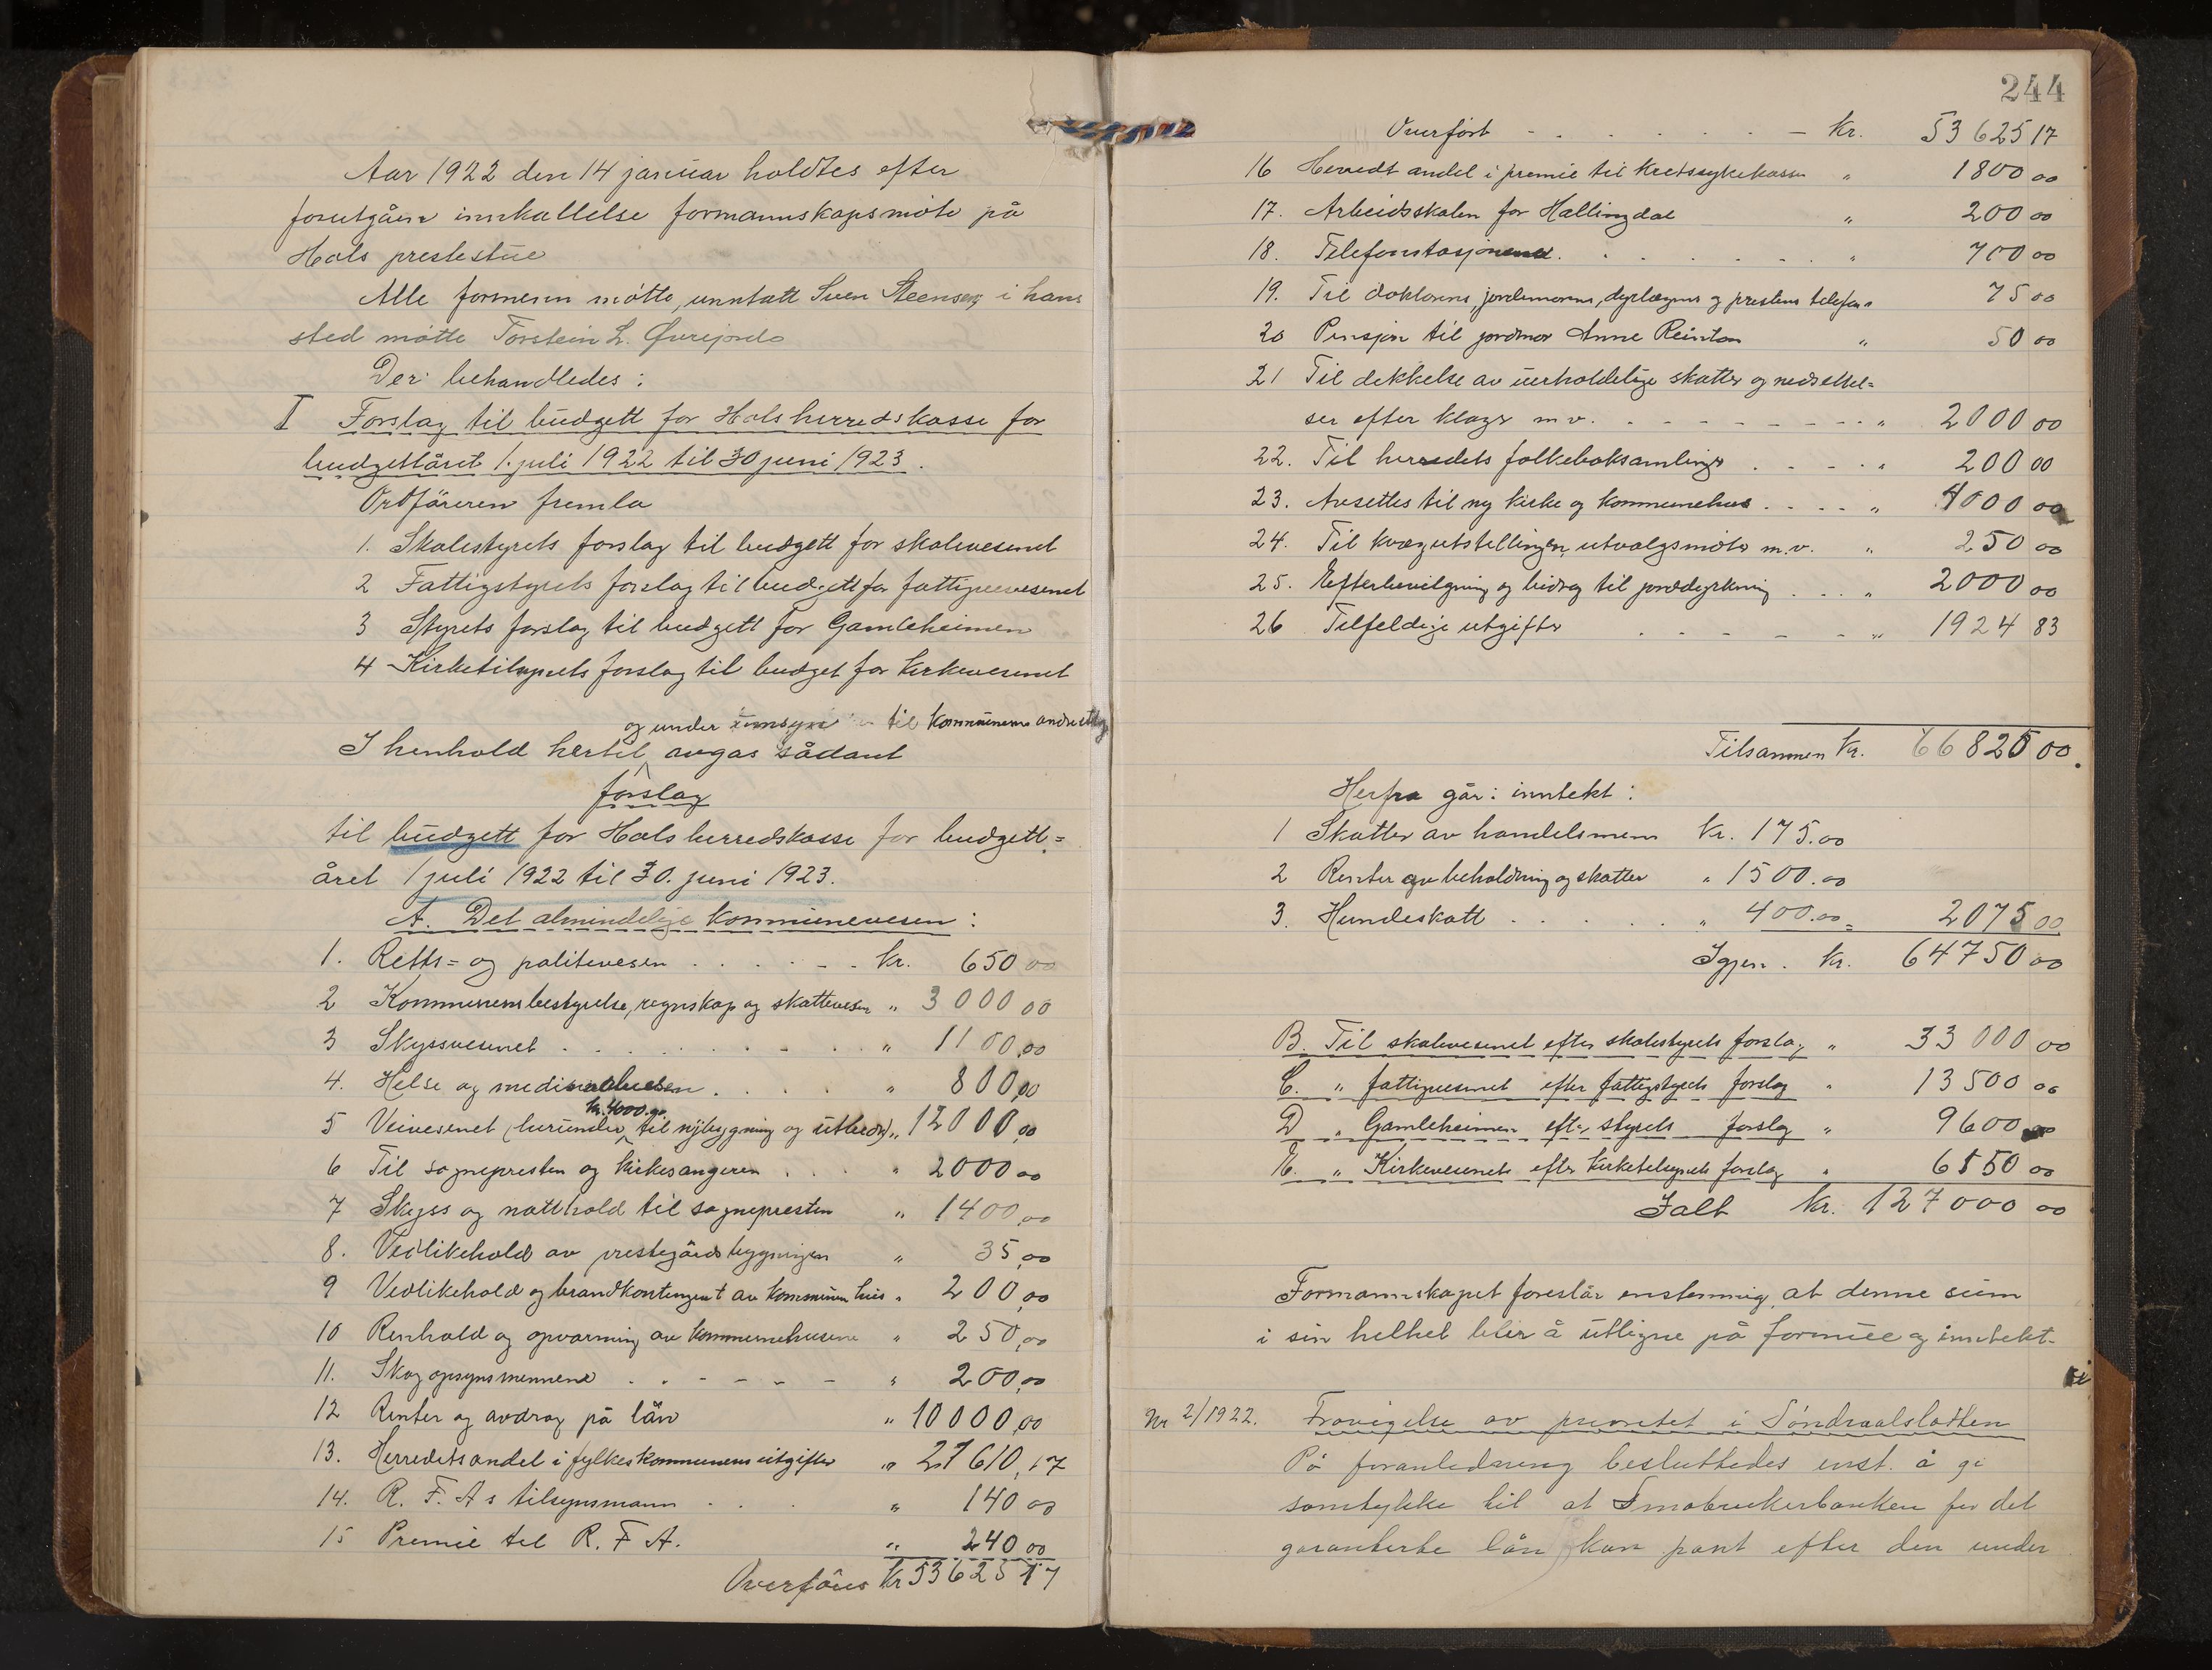 Aar 1922 den 14 januar holdtes efter
forutgåen innkallelse formannskapsmöte på
Hols prestestue
Alle formenn mötte, unntatt Sven Steensen, i hans
sted mötte Torstein L. Övrejorde
Der behandledes:
I Forslag til budgett for Hols herredskasse for
budgettåret 1. juli 1922 til 30 juni 1923.
Ordföreren fremla
1. Skolestyrets forslag til budgett for skolevesenet
2 Fattigstyrets forslag til budgett for fattigvesenet
3 Styrets forslag til budgett for Gamleheimen
4 Kirketilsynets forslag til budget for kirkevesenet
og under til kommunens andre
I henhold hertil avgas sådant
forslag
til budgett for Hols herredskasse for budgett=
året 1 juli 1922 til 30. juni 1923.
A. Det almindelige kommunevesen:
1. Retts= og politivesen . . . . . . kr. 650 00
2 Kommunens bestyrelse, regnskap og skattevesen " 3000 00
3 Skyssvesenet . . . . . . " 1100,00
4. Helse og medisinalvesen . . . . " 800,00
kr. 4000.00
5 Veivesenet (herunder til nybygning og utbedr) " 12000,00
6 Til sognepresten og kirkesangeren . . . " 2000 00
7 Skyss og natthold til sognepresten " 1400,00
8. Vedlikehold av prestegårdsbygningen " 35,00
9 Vedlikehold og brandkontingent av kommunens hus " 200,00
10 Renhold og opvarming av kommunehusene " 250,00
11. Skogopsynsmennene . . - - - - " 200,00
12 Renter og avdrag på lån " 10000,00
13. Herredets andel i fylkeskommunens utgifter " 21610,17
14. R. F. A s tilsynsmann . . . " 140 00
15 Premie til R. F. A. " 240 00
Overföres kr 53625 17
244
Overfört - - . . . . . - kr. 53625 17
16 Herredt andel i premie til kretssykekassen " 1800 00
17. Arbeidsskolen for Hallingdal " 200 00
18. Telefonstasjonene . . . . . . . " 700 00
19. Til doktorens, jordmorens, dyrlægens og prestens telefon " 75 00
20 Pensjon til jordmor Anne Reinton " 50 00
21 Til dekkelse av uerholdelige skatter og nedsettel=
ser efter klager m.v. . - - - - - - - " 2000 00
22. Til herredets folkeboksamlinger . - - . " 200 00
23. Avsettes til ny kirke og kommunehus . . . . " 4000 00
24. Til kvægutstillinger, utvalgsmöter m.v. " 250 00
25. Efterbevilgning og bidrag til jorddyrkning . . . " 2000 00
26 Tilfeldige utgifter . - - - - " 1924 83
Tilsammen kr. 66825 00.
Herfra går: inntekt:
1 Skatter av handelsmenn kr. 175.00
2 Renter av beholdning og skatter " 1500.00
3. Hundeskatt . . . . . " 400.00 = 2075 00
Igjen. kr. 64750 00
B. Til skolevesenet efter skolestyrets forslag " 33000 00
C. " fattigvesenet efter fattigstyrets forslag " 13500 00
D " Gamleheimen efter styrets forslag " 9600 00
E. " Kirkevesenets efter kirketilsynets forslag " 6150 00
Ialt kr. 127000 00
Formannskapet foreslår enstemmig, at denne sum
i sin helhet blir å utligne på formue og inntekt.
Nr 2/1922. Fravigelse av prioritet i Söndraalslotten
På foranledning besluttedes enst. å gi
samtykke til at Småbrukerbanken for det
garanterte lån kan pant efter den under